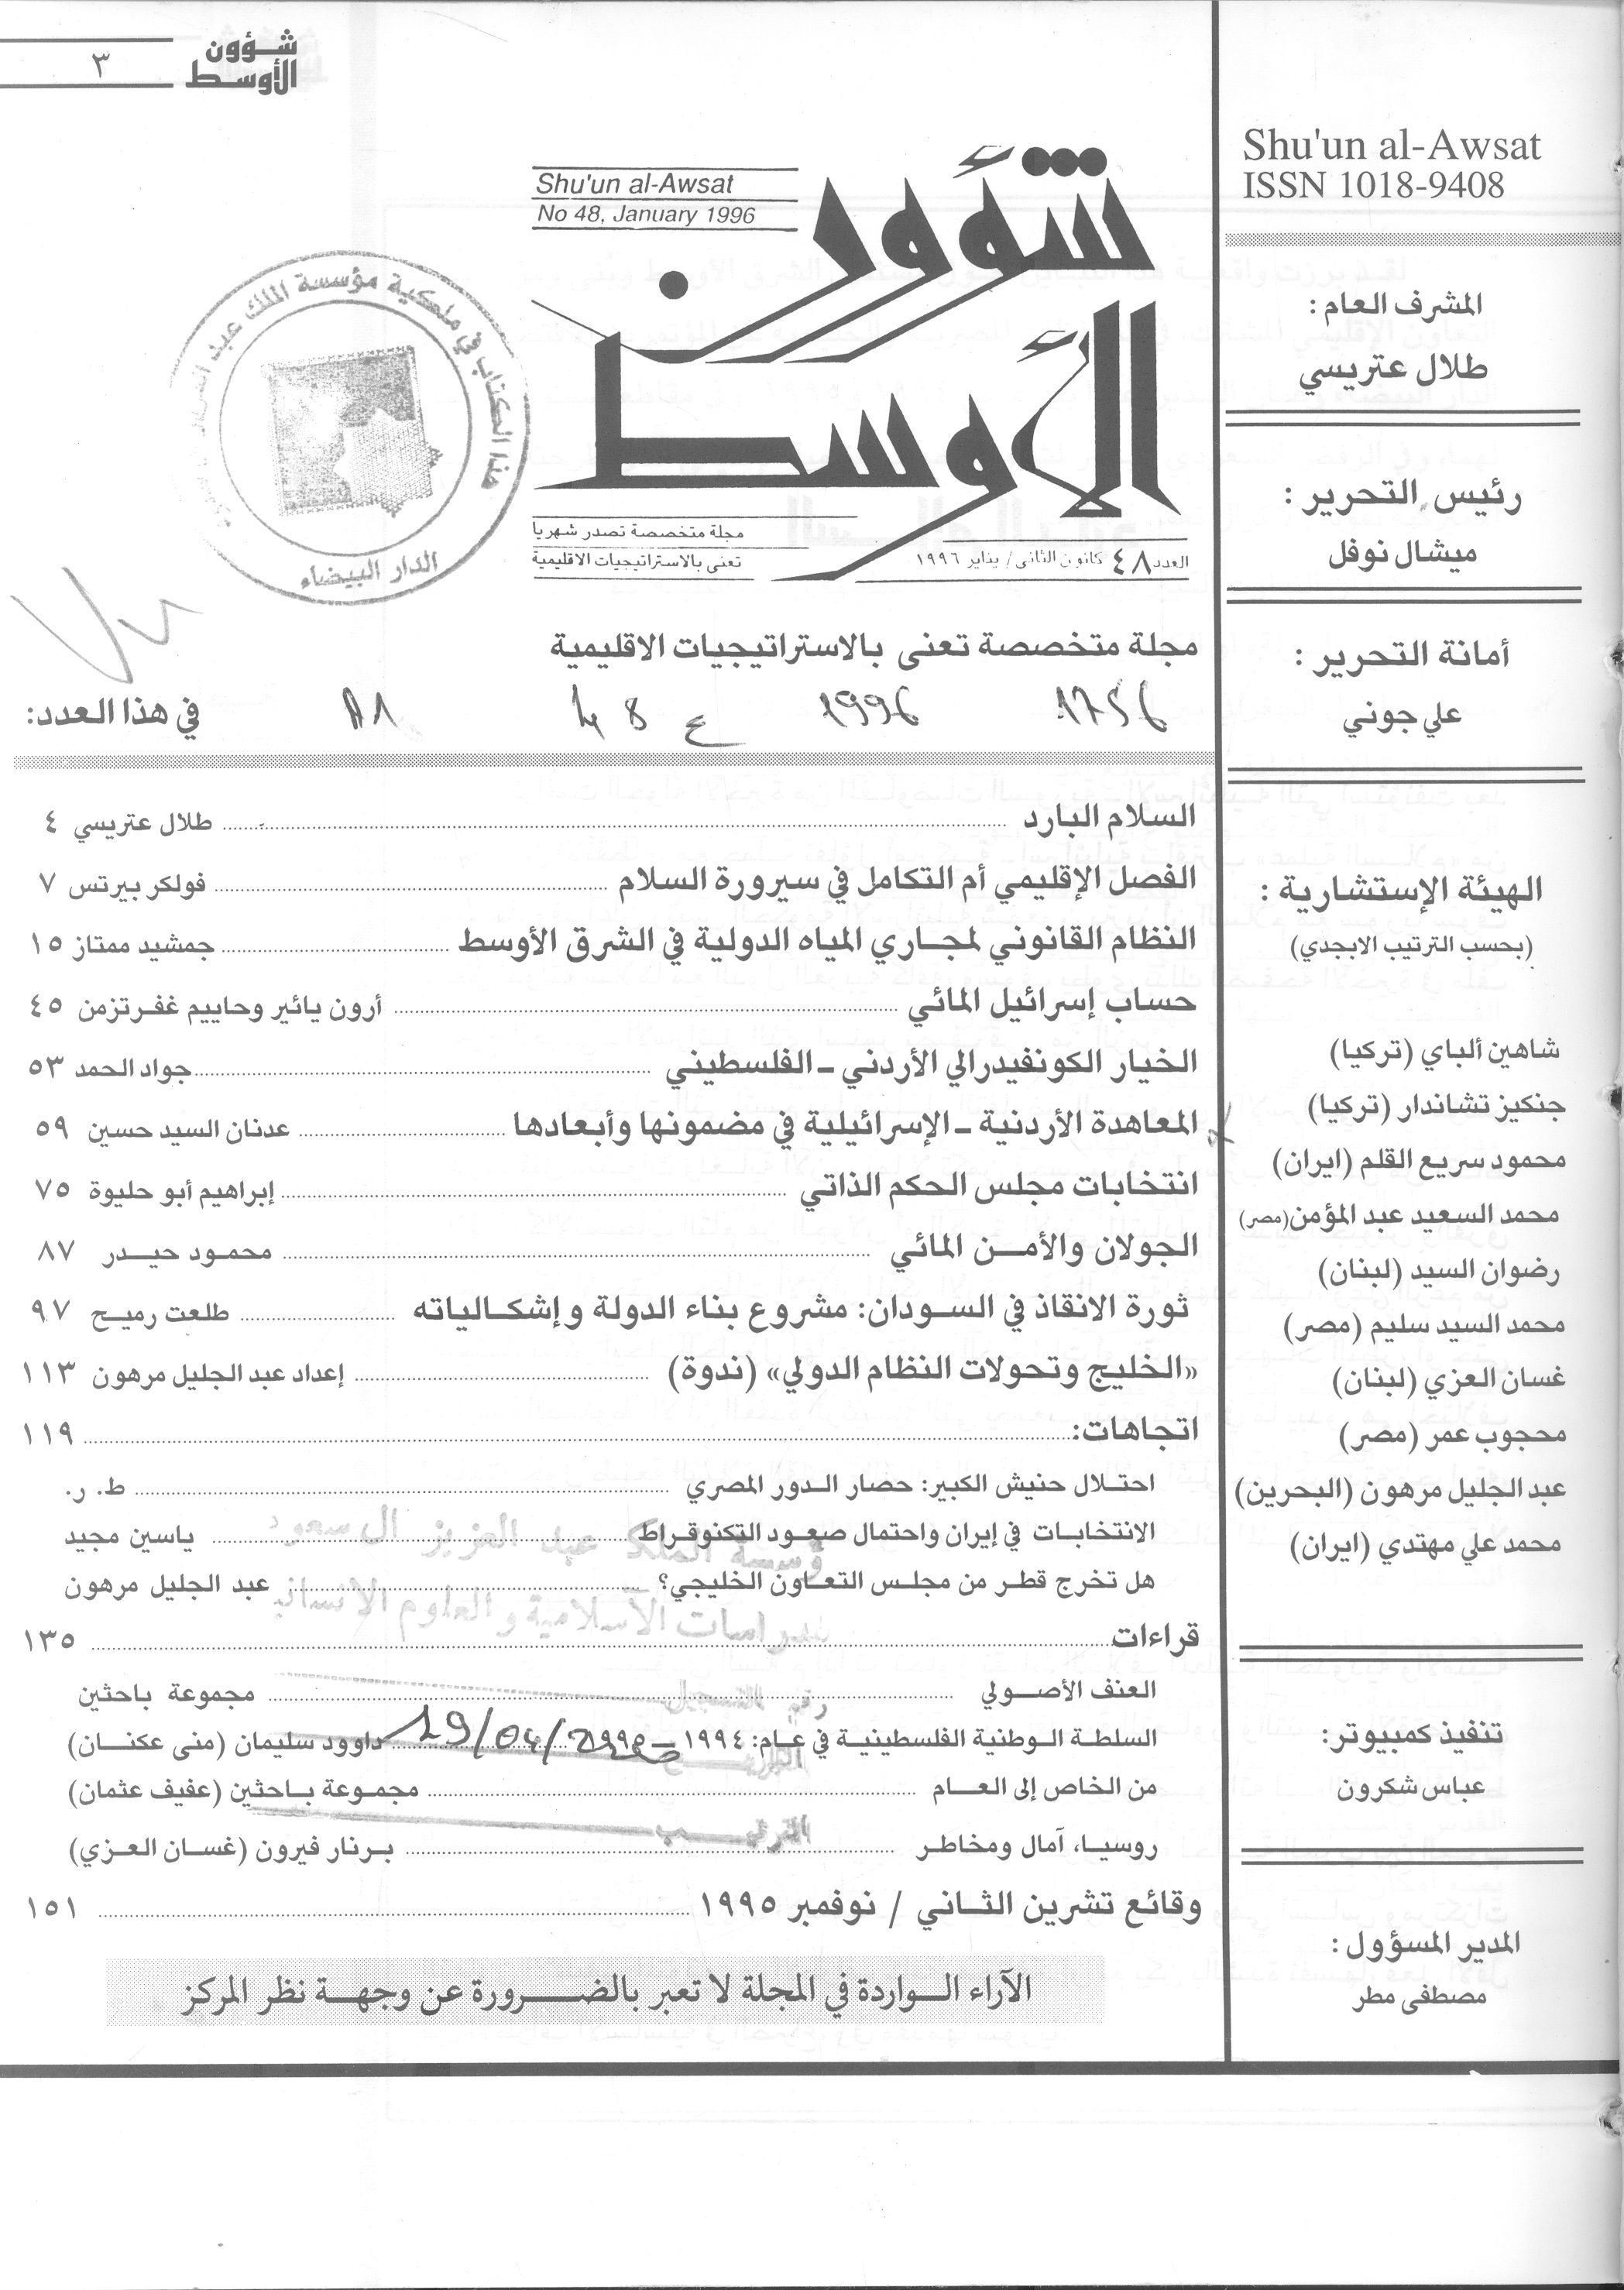 ٣
شؤون
الأوسط
Shu'un al-Awsat
ISSN 1018-9408
المشرف العام :
طلال عتريسي
رئيس التحرير :
ميشال نوفل
أمانة التحرير :
علي جوني
الهيئة الإستشارية :
(بحسب الترتيب الابجدي)
شاهين ألباي (تركيا)
جنكيز تشاندار (تركيا)
محمود سريع القلم (ايران)
محمد السعيد عبد المؤمن (مصر)
رضوان السيد (لبنان)
محمد السيد سليم (مصر)
غسان العزي (لبنان)
محجوب عمر (مصر)
عبد الجليل مرهون (البحرين)
محمد علي مهتدي (ايران)
تنفيذ كمبيوتر:
عباس شكرون
المدير المسؤول :
مصطفى مطر
Shu'un al-Awsat
No 48, January 1996
شؤون
الأوسط
مجلة متخصصة تصدر شهريا
تعنى بالاستراتيجيات الاقليمية
العدد ٤٨ كانون الثاني / يناير ١٩٩٦
هذا الكتاب في ملكية مؤسسة الملك عبد
الدار البيضاء
مجلة متخصصة تعنى بالاستراتيجيات الاقليمية
1756 1996 ع 48
في هذا العدد:
السلام البارد ........ طلال عتريسي ٤
الفصل الإقليمي أم التكامل في سيرورة السلام ........ فولكر بيرتس ٧
النظام القانوني لمجاري المياه الدولية في الشرق الأوسط ........ جمشيد ممتاز ١٥
حساب إسرائيل المائي ........ أرون يائير وحاييم غفرتزمن ٤٥
الخيار الكونفيدرالي الأردني - الفلسطيني ........ جواد الحمد ٥٣
المعاهدة الأردنية - الإسرائيلية في مضمونها وأبعادها ........ عدنان السيد حسين ٥٩
انتخابات مجلس الحكم الذاتي ........ إبراهيم أبو حليوة ٧٥
الجولان والأمن المائي ........ محمود حيدر ٨٧
ثورة الانقاذ في السودان: مشروع بناء الدولة وإشكالياته ........ طلعت رميح ٩٧
«الخليج وتحولات النظام الدولي» (ندوة) ........ إعداد عبد الجليل مرهون ١١٣
اتجاهات: ........ ١١٩
احتلال حنيش الكبير: حصار الدور المصري ........ ط. ر.
الانتخابات في إيران واحتمال صعود التكنوقراط ........ ياسين مجيد
هل تخرج قطر من مجلس التعاون الخليجي؟ ........ عبد الجليل مرهون
قراءات ........ ١٣٥
العنف الأصولي ........ مجموعة باحثين
السلطة الوطنية الفلسطينية في عام: ١٩٩٤ - ١٩٩٥ ........ داوود سليمان (منى عكنان)
من الخاص إلى العام ........ مجموعة باحثين (عفيف عثمان)
روسيا، آمال ومخاطر ........ برنار فيرون (غسان العزي)
وقائع تشرين الثاني / نوفمبر ١٩٩٥ ........ ١٥١
الآراء الواردة في المجلة لا تعبر بالضرورة عن وجهة نظر المركز